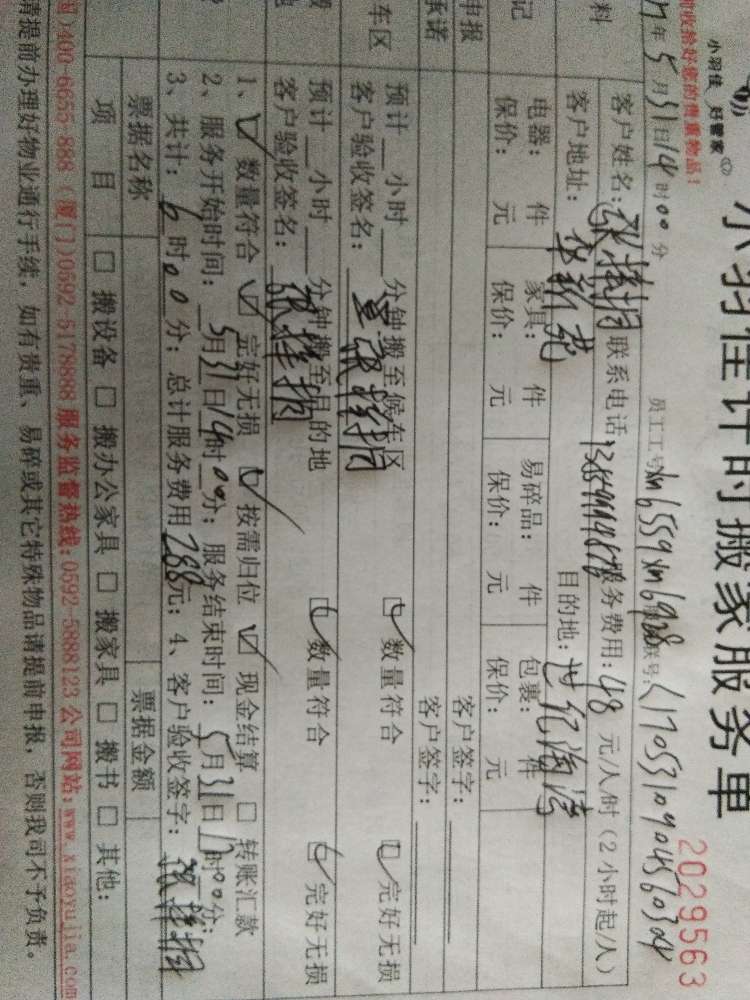 小羽佳 好管家
小羽佳计时搬家服务单
2029563
妥收拾好您的贵重物品！
年5月31日14时00分
员工工号xm6559xm6928
料
客户姓名：
联系电话
服务费用：48元/人/时（2小时起/人）
客户地址：
目的地：世纪海湾
记
电器： 件 家具： 件 易碎品： 件 包裹： 件
保价： 元 保价： 元 保价： 元 保价： 元
申报
客户签字：
承诺
客户签字：
车区
预计 小时 分钟搬至候车区 数量符合 完好无损
客户验收签名：
预计 小时 分钟搬至目的地 数量符合 完好无损
客户验收签名：
1、 数量符合 完好无损 按需归位 现金结算 转账汇款
2、服务开始时间：5月31日14时00分；服务结束时间：5月31日17时00分；
3、共计：6时00分；总计服务费用288元；4、客户验收签字：
票据名称 票据金额
项 目 搬设备 搬办公家具 搬家具 搬书 其他：
)400-6655-888（厦门)0592-5178888 服务监督热线:0592-5888123 公司网站:www.xiaoyujia.com
请提前办理好物业通行手续，如有贵重、易碎或其它特殊物品请提前申报，否则我司不予负责。